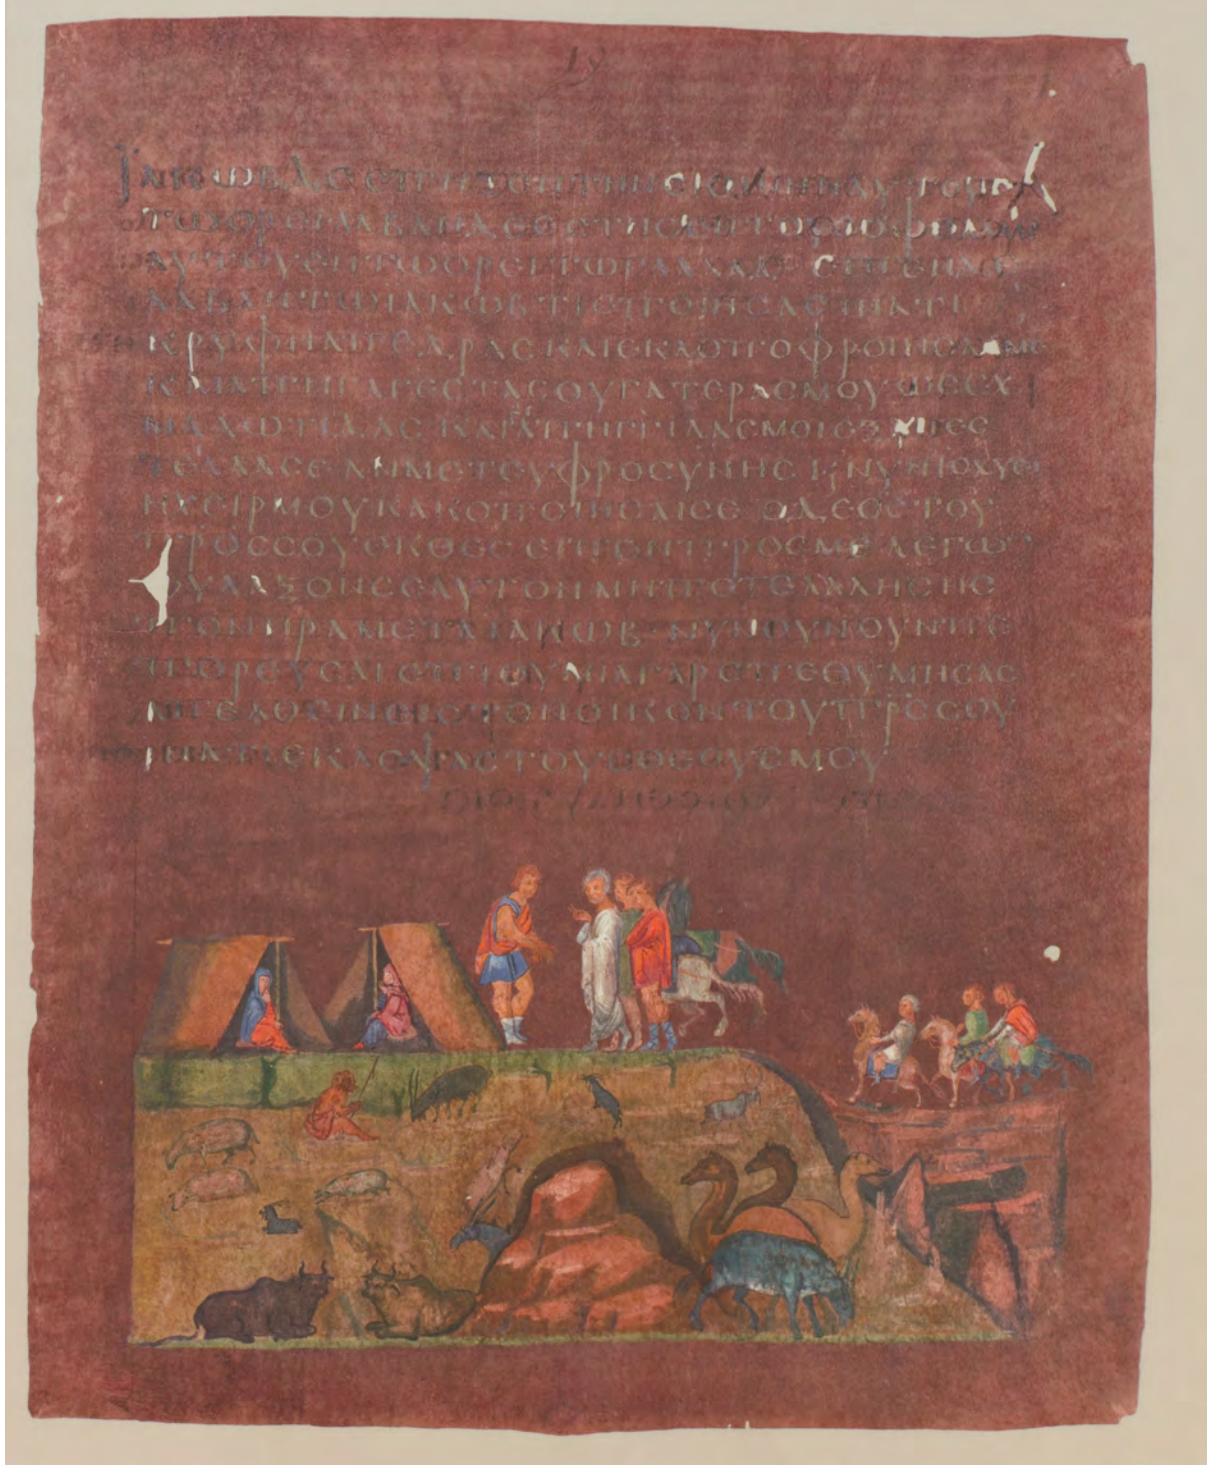 19
ΙΑΚΩΒΔΕΕΠΗΞΕΝΤΗΝϹΚΗΝΗΝΑΥΤΟΥ
ΤΩΟΡΕΙΛΑΒΑΝΔΕΕϹΤΗϹΕΝΤΟΥϹΑΔΕΛΦΟΥϹ
ΑΥΤΟΥΕΝΤΩΟΡΕΙΤΩΓΑΛΑΑΔ·ΕΙΠΕΝΔΕ
ΛΑΒΑΝΤΩΙΑΚΩΒΤΙΕΠΟΙΗϹΑϹΙΝΑΤΙ
ΚΡΥΦΗΑΠΕΔΡΑϹΚΑΙΕΚΛΟΠΟΦΟΡΗϹΑϹΜΕ
ΚΑΙΑΠΗΓΑΓΕϹΤΑϹΘΥΓΑΤΕΡΑϹΜΟΥΩϹΕΧ
ΜΑΛΩΤΙΔΑϹΚΑΙΕΙΑΠΗΓΓΙΛΑϹΜΟΙΕΞΑΠΕϹ
ΤΕΙΛΑϹΕΑΝΜΕΤΕΥΦΡΟϹΥΝΗϹΚΝΥΝΙϹΧΥΕΙ
ΗΧΕΙΡΜΟΥΚΑΚΟΠΟΙΗϹΑΙϹΕΟΔΕΘϹΤΟΥ
ΠΡΟϹϹΟΥΕΚΘΕϹΕΙΠΕΝΠΡΟϹΜΕΛΕΓΩΝ
ΦΥΛΑΞΟΝϹΕΑΥΤΟΝΜΗΠΟΤΕΛΑΛΗϹΗϹ
ΠΟΝΗΡΑΜΕΤΑΙΑΚΩΒ·ΝΥΝΟΥΝΟΥΝΠΕ
ΠΟΡΕΥϹΑΙΕΠΙΘΥΜΙΑΓΑΡΕΠΕΘΥΜΗϹΑϹ
ΑΠΕΛΘΕΙΝΕΙϹΤΟΝΟΙΚΟΝΤΟΥΠΡϹϹΟΥ
ΙΝΑΤΙΕΚΛΕΨΑϹΤΟΥϹΘΕΟΥϹΜΟΥ